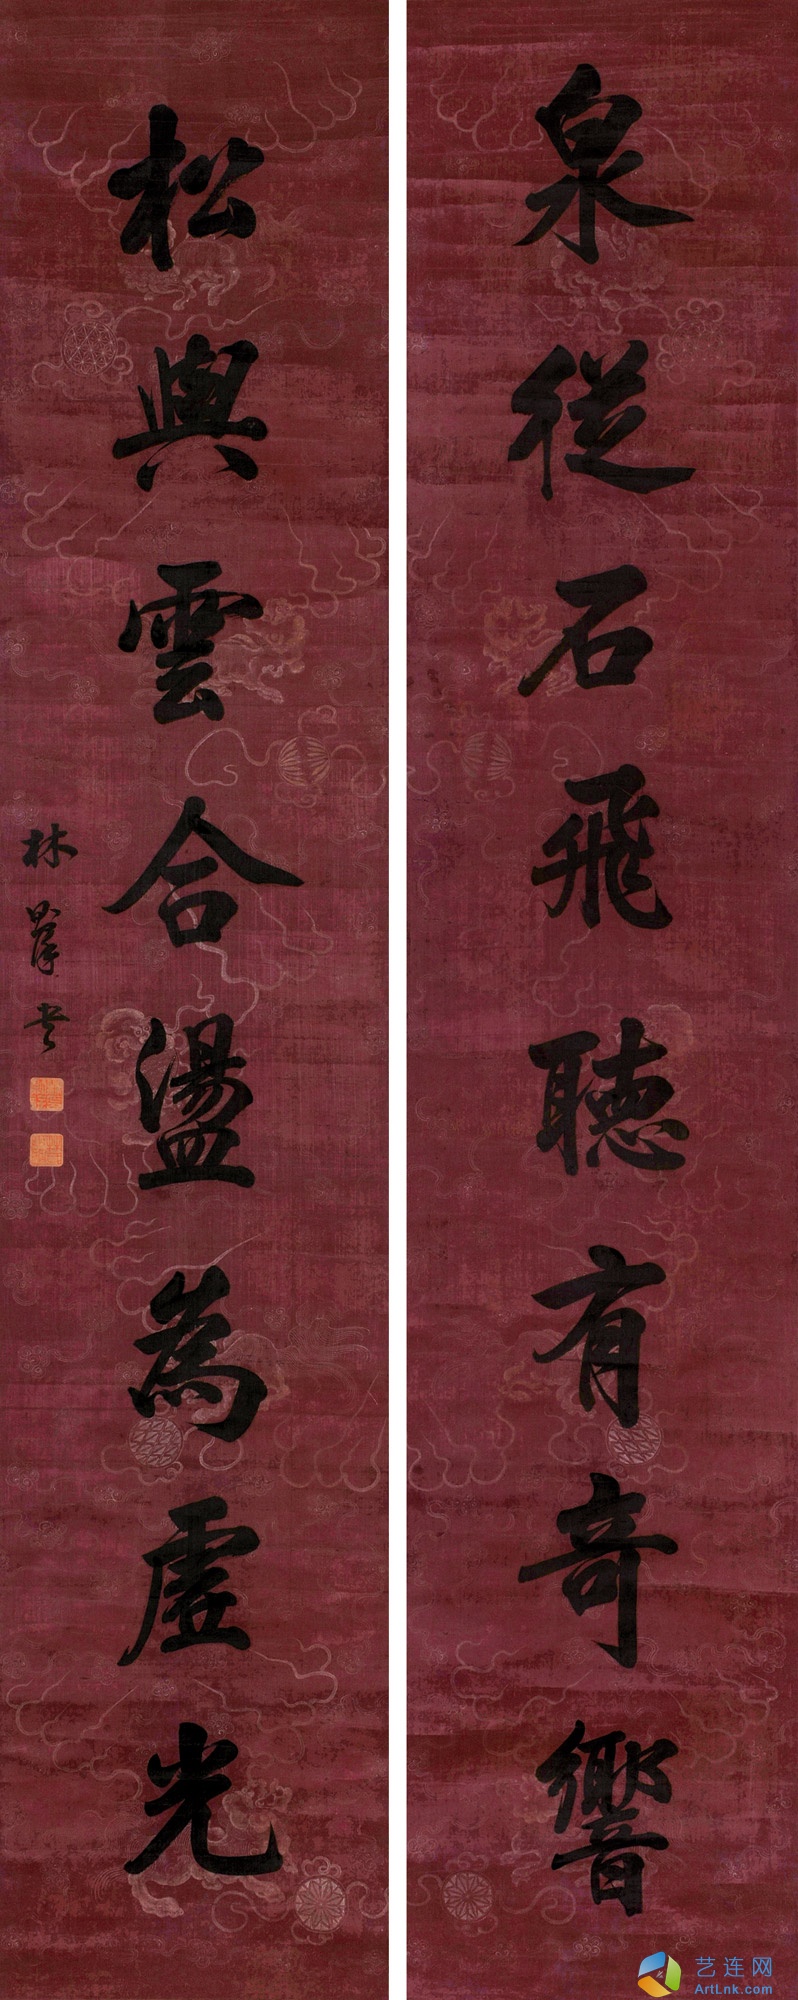 泉從石飛聽有奇響
松與雲合盪為虛光
林
艺连网
ArtLnk.com